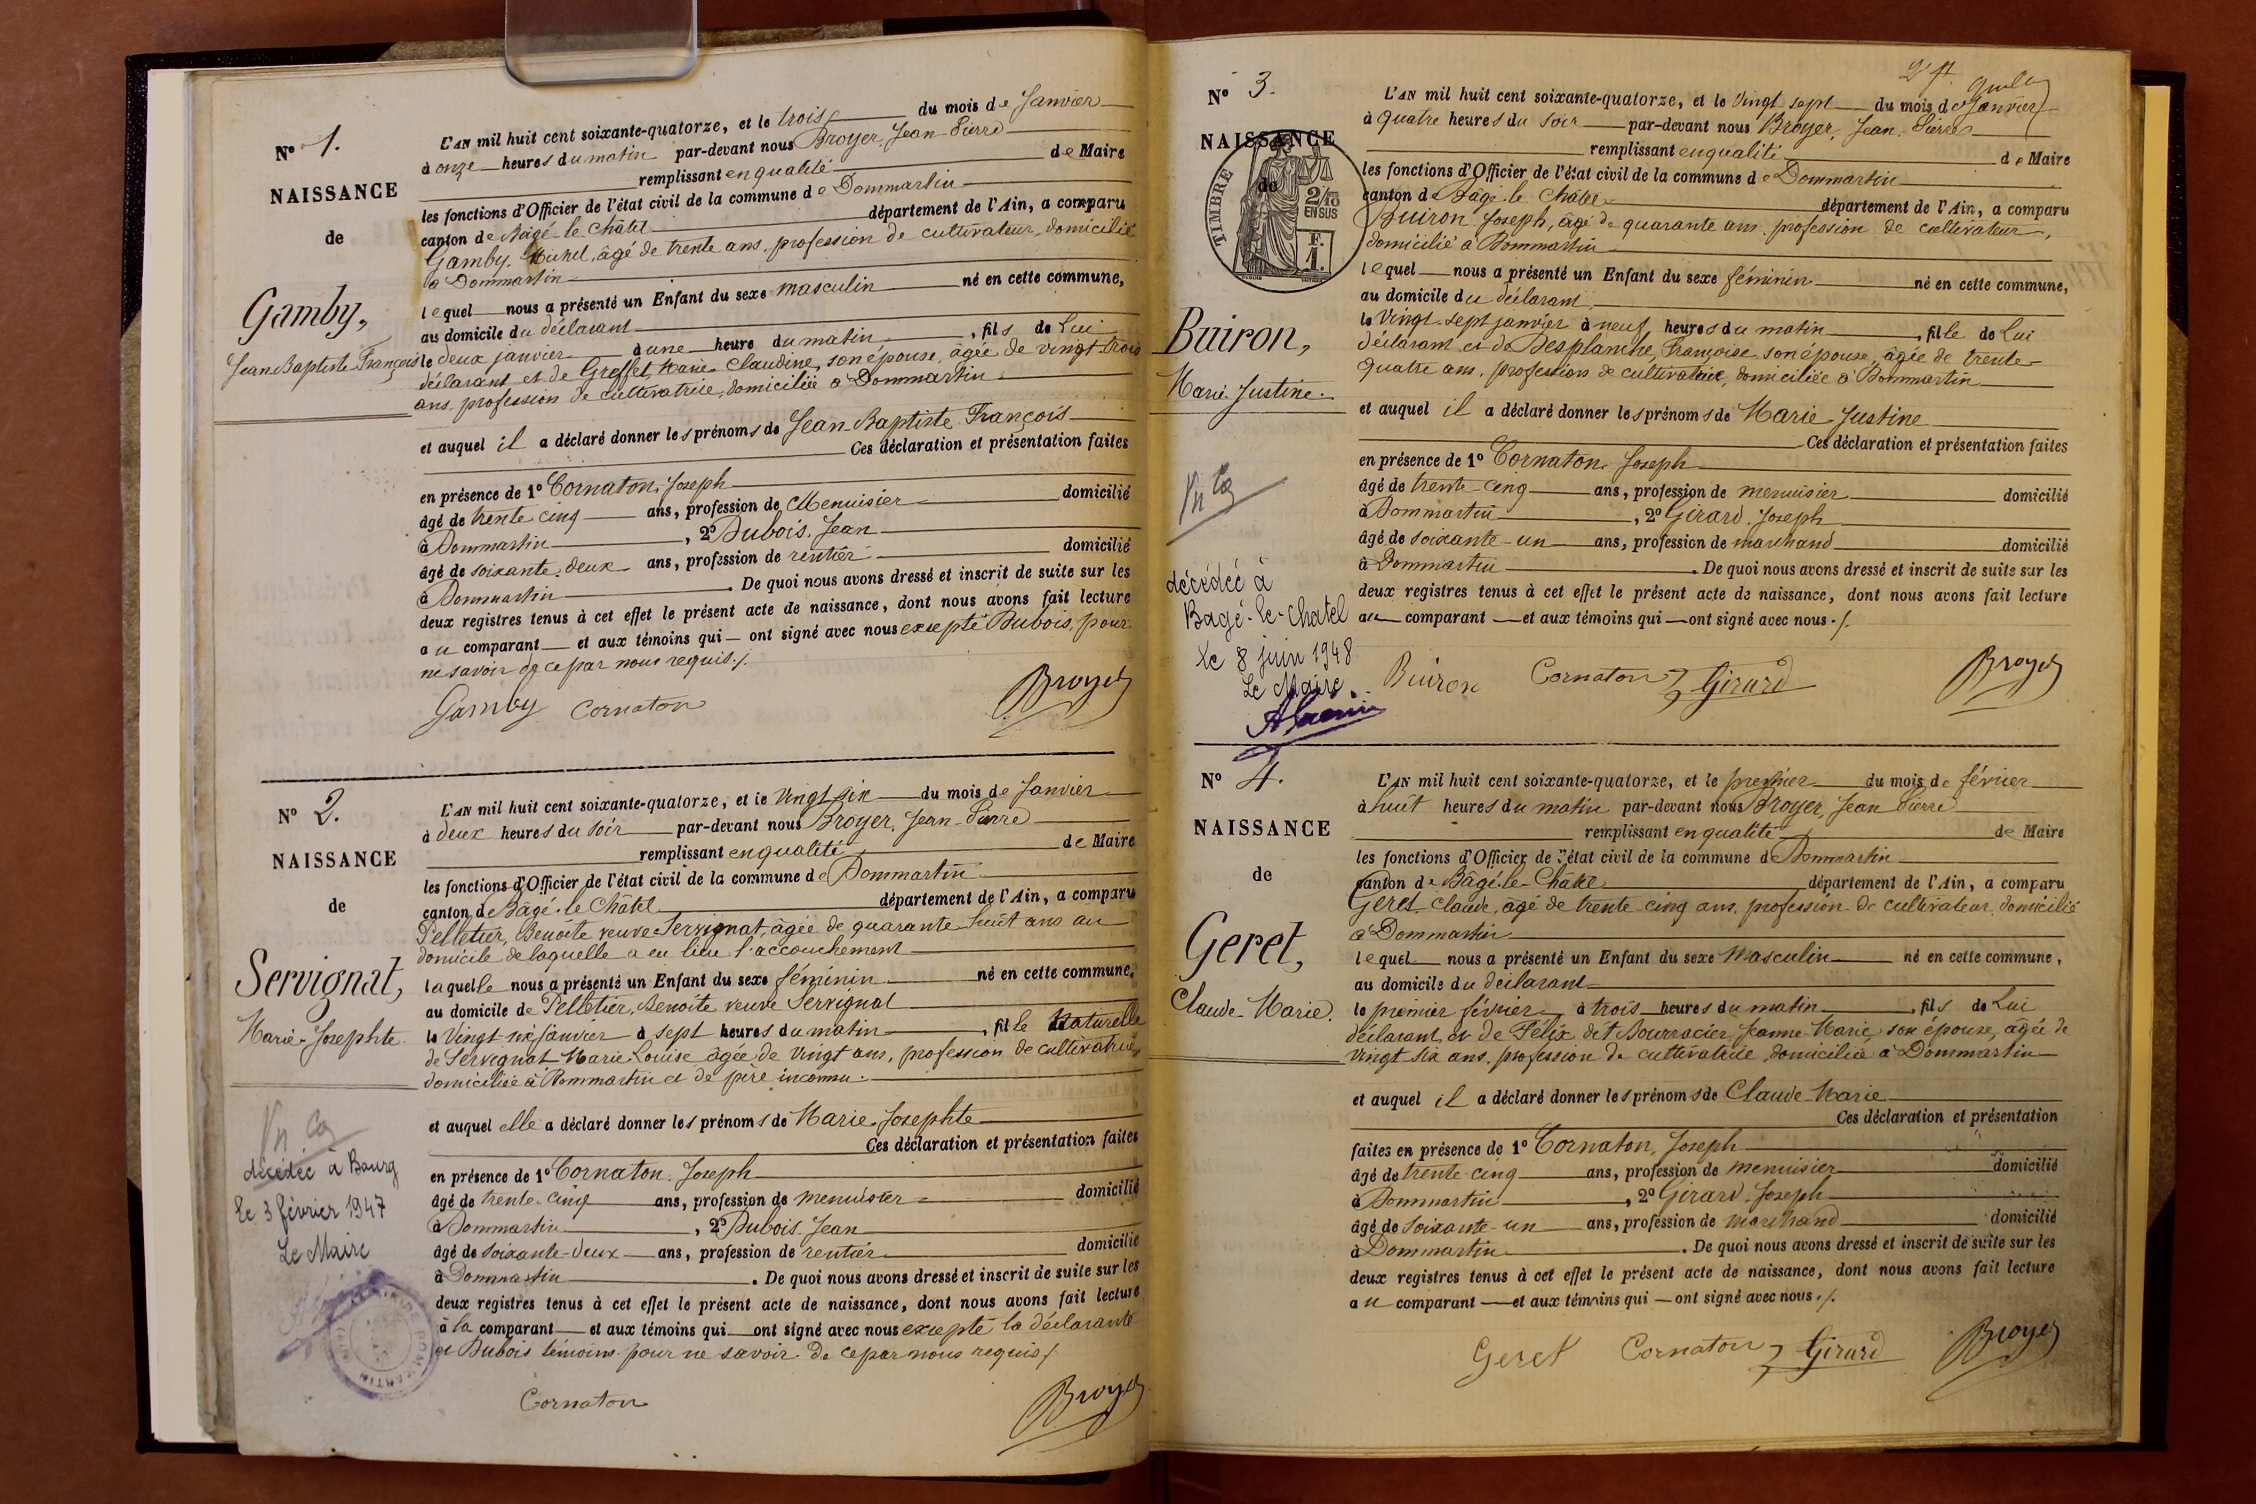 Nº 1.
NAISSANCE
de
Gamby,
Jean Baptiste François
L'AN mil huit cent soixante-quatorze, et le trois du mois de Janvier
à onze heures du matin par-devant nous Broyer, Jean-Pierre
remplissant en qualité de Maire
les fonctions d'Officier de l'état civil de la commune de Dommartin
canton de Bâgé-le-Châtel département de l'Ain, a comparu
Gamby, Michel, âgé de trente ans, profession de cultivateur, domicilié
à Dommartin
lequel nous a présenté un Enfant du sexe masculin né en cette commune,
au domicile du déclarant
le deux janvier à une heure du matin, fils de Lui
déclarant et de Greffet, Marie Claudine, son épouse, âgée de vingt-trois
ans, profession de cultivatrice, domiciliée à Dommartin
et auquel il a déclaré donner les prénoms de Jean-Baptiste François
Ces déclaration et présentation faites
en présence de 1º Cornaton, Joseph
âgé de trente cinq ans, profession de Menuisier domicilié
à Dommartin, 2º Dubois, Jean
âgé de soixante-deux ans, profession de rentier domicilié
à Dommartin. De quoi nous avons dressé et inscrit de suite sur les
deux registres tenus à cet effet le présent acte de naissance, dont nous avons fait lecture
au comparant et aux témoins qui ont signé avec nous excepté Dubois, pour
ne savoir de ce par nous requis./.
Gamby Cornaton Broyer
Nº 2.
NAISSANCE
de
Servignat,
Marie-Josephte
décédée à Bourg
le 3 février 1947
Le Maire
L'AN mil huit cent soixante-quatorze, et le Vingt six du mois de Janvier
à deux heures du soir par-devant nous Broyer, Jean-Pierre
remplissant en qualité de Maire
les fonctions d'Officier de l'état civil de la commune de Dommartin
canton de Bâgé-le-Châtel département de l'Ain, a comparu
Pelletier, Benoîte veuve Servignat, âgée de quarante-huit ans au
domicile de laquelle a eu lieu l'accouchement
laquelle nous a présenté un Enfant du sexe féminin né en cette commune,
au domicile de Pelletier, Benoîte veuve Servignat
le Vingt-six janvier à sept heures du matin, fille Naturelle
de Servignat Marie Louise âgée de vingt ans, profession de cultivatrice,
domiciliée à Dommartin et de père inconnu.
et auquel elle a déclaré donner les prénoms de Marie-Josephte
Ces déclaration et présentation faites
en présence de 1º Cornaton, Joseph
âgé de trente-cinq ans, profession de menuisier domicilié
à Dommartin, 2º Dubois, Jean
âgé de soixante-deux ans, profession de rentier domicilié
à Dommartin. De quoi nous avons dressé et inscrit de suite sur les
deux registres tenus à cet effet le présent acte de naissance, dont nous avons fait lecture
à la comparant et aux témoins qui ont signé avec nous excepté la déclarante
et Dubois témoins pour ne savoir de ce par nous requis./
Cornaton Broyer
Nº 3.
NAISSANCE
de
TIMBRE
2/10
EN SUS
F.
1.
Buiron,
Marie-Justine.
décédée à
Bagé-le-Chatel
le 8 juin 1948
Le Maire
L'AN mil huit cent soixante-quatorze, et le Vingt sept du mois de Janvier
à quatre heures du soir par-devant nous Broyer, Jean Pierre
remplissant en qualité de Maire
les fonctions d'Officier de l'état civil de la commune de Dommartin
canton de Bâgé-le-Châtel département de l'Ain, a comparu
Buiron Joseph, âgé de quarante ans, profession de cultivateur,
domicilié à Dommartin
lequel nous a présenté un Enfant du sexe féminin né en cette commune,
au domicile du déclarant
le Vingt-sept janvier à neuf heures du matin, fille de Lui
déclarant et de Desplanche, Françoise son épouse, âgée de trente-
quatre ans, profession de cultivatrice, domiciliée à Dommartin
et auquel il a déclaré donner les prénoms de Marie-Justine
Ces déclaration et présentation faites
en présence de 1º Cornaton, Joseph
âgé de trente-cinq ans, profession de menuisier domicilié
à Dommartin, 2º Girard, Joseph
âgé de soixante-un ans, profession de marchand domicilié
à Dommartin. De quoi nous avons dressé et inscrit de suite sur les
deux registres tenus à cet effet le présent acte de naissance, dont nous avons fait lecture
au comparant et aux témoins qui ont signé avec nous./.
Buiron Cornaton Girard Broyer
Nº 4.
NAISSANCE
de
Geret,
Claude-Marie.
L'AN mil huit cent soixante-quatorze, et le premier du mois de février
à huit heures du matin par-devant nous Broyer, Jean Pierre
remplissant en qualité de Maire
les fonctions d'Officier de l'état civil de la commune de Dommartin
canton de Bâgé-le-Châtel département de l'Ain, a comparu
Geret, Claude, âgé de trente-cinq ans, profession de cultivateur, domicilié
à Dommartin
lequel nous a présenté un Enfant du sexe Masculin né en cette commune,
au domicile du déclarant
le premier février à trois heures du matin, fils de Lui
déclarant, et de Félix dit Bourracier Jeanne-Marie, son épouse, âgée de
vingt six ans, profession de cultivatrice domiciliée à Dommartin
et auquel il a déclaré donner les prénoms de Claude-Marie
Ces déclaration et présentation
faites en présence de 1º Cornaton, Joseph
âgé de trente-cinq ans, profession de menuisier domicilié
à Dommartin, 2º Girard, Joseph
âgé de soixante-un ans, profession de marchand domicilié
à Dommartin. De quoi nous avons dressé et inscrit de suite sur les
deux registres tenus à cet effet le présent acte de naissance, dont nous avons fait lecture
au comparant et aux témoins qui ont signé avec nous./.
Geret Cornaton Girard Broyer